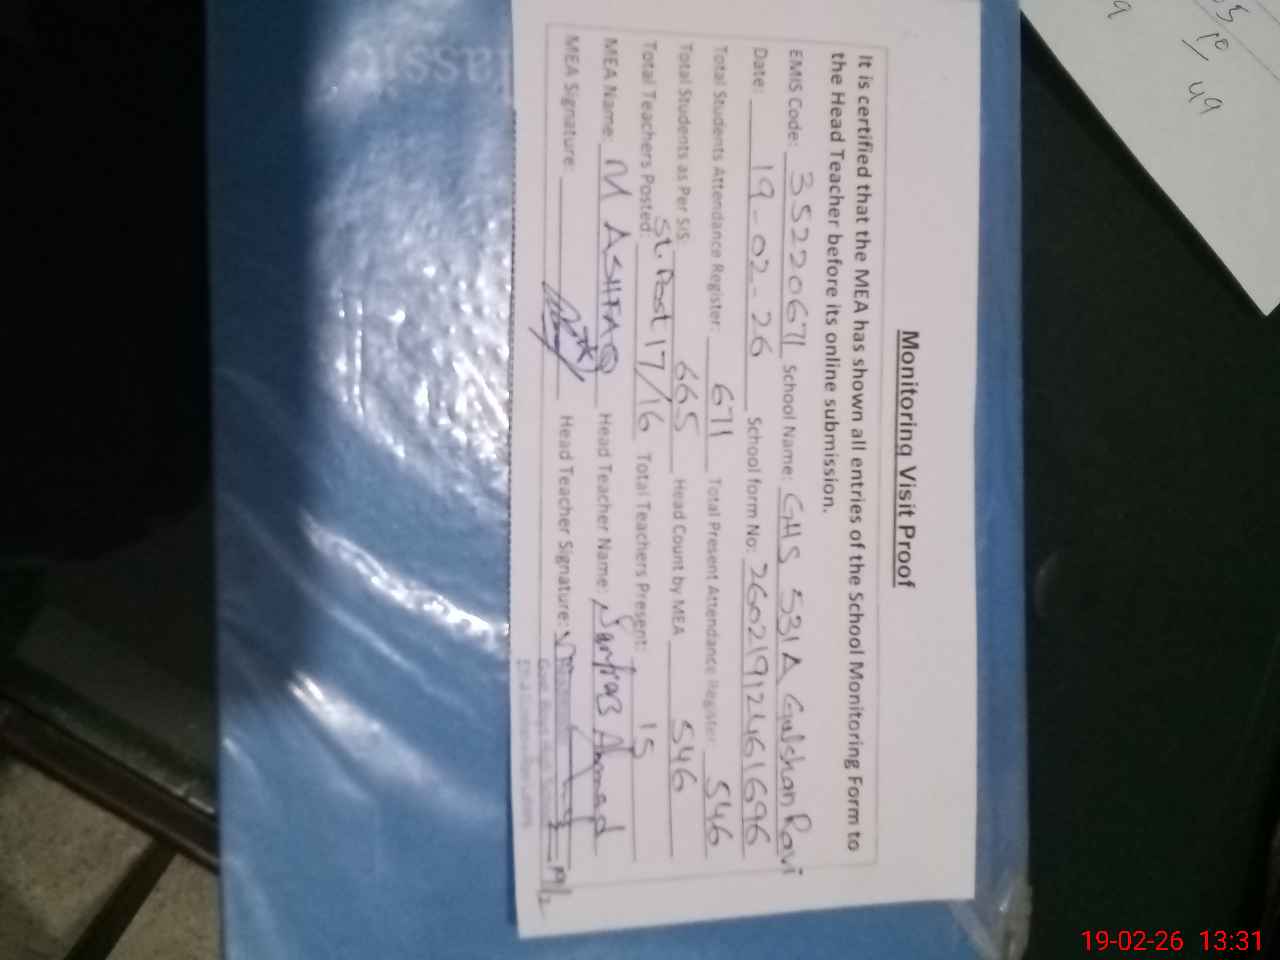 Monitoring Visit Proof
It is certified that the MEA has shown all entries of the School Monitoring Form to
the Head Teacher before its online submission.
EMIS Code: 35220671 School Name: GHS 531A Gulshan Ravi
Date: 19-02-26 School form No: 26021912461696
Total Students Attendance Register: 671 Total Present Attendance Register: 546
Total Students as Per SIS 665 Head Count by MEA 546
Total Teachers Posted: St. Post 17/16 Total Teachers Present: 15
MEA Name: M ASHFAQ Head Teacher Name: Sarfraz Ahmed
MEA Signature: Head Teacher Signature: 19/2
49
19-02-26 13:31